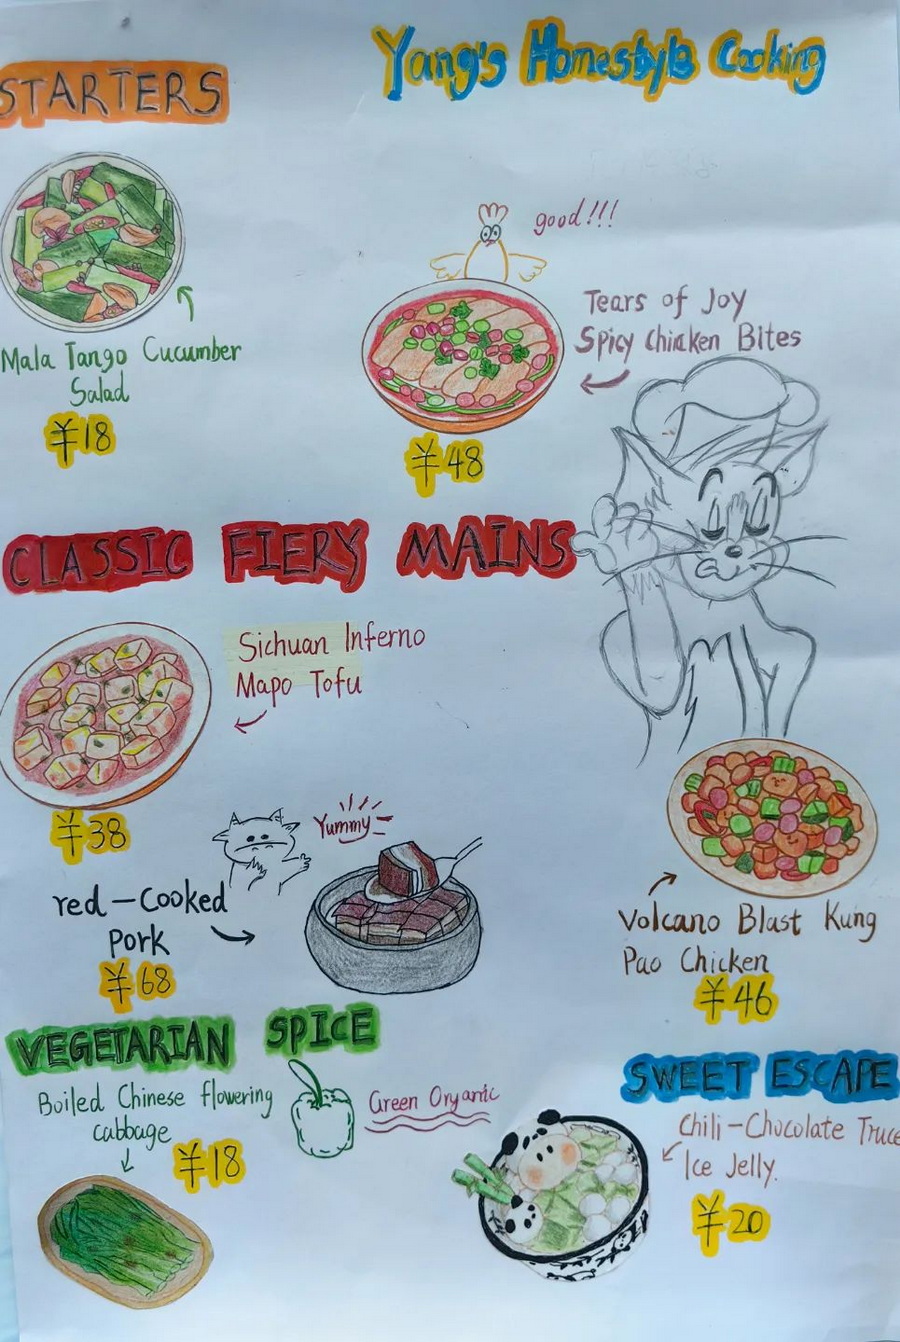 Yang's Homestyle Cooking
STARTERS
Mala Tango Cucumber
Salad
¥18
good!!!
Tears of Joy
Spicy Chicken Bites
¥48
CLASSIC FIERY MAINS
Sichuan Inferno
Mapo Tofu
¥38
Yummy
red-Cooked
Pork
¥68
Volcano Blast Kung
Pao Chicken
¥46
VEGETARIAN SPICE
Boiled Chinese flowering
cabbage
¥18
Green Organic
SWEET ESCAPE
Chili-Chocolate Truce
Ice Jelly.
¥20